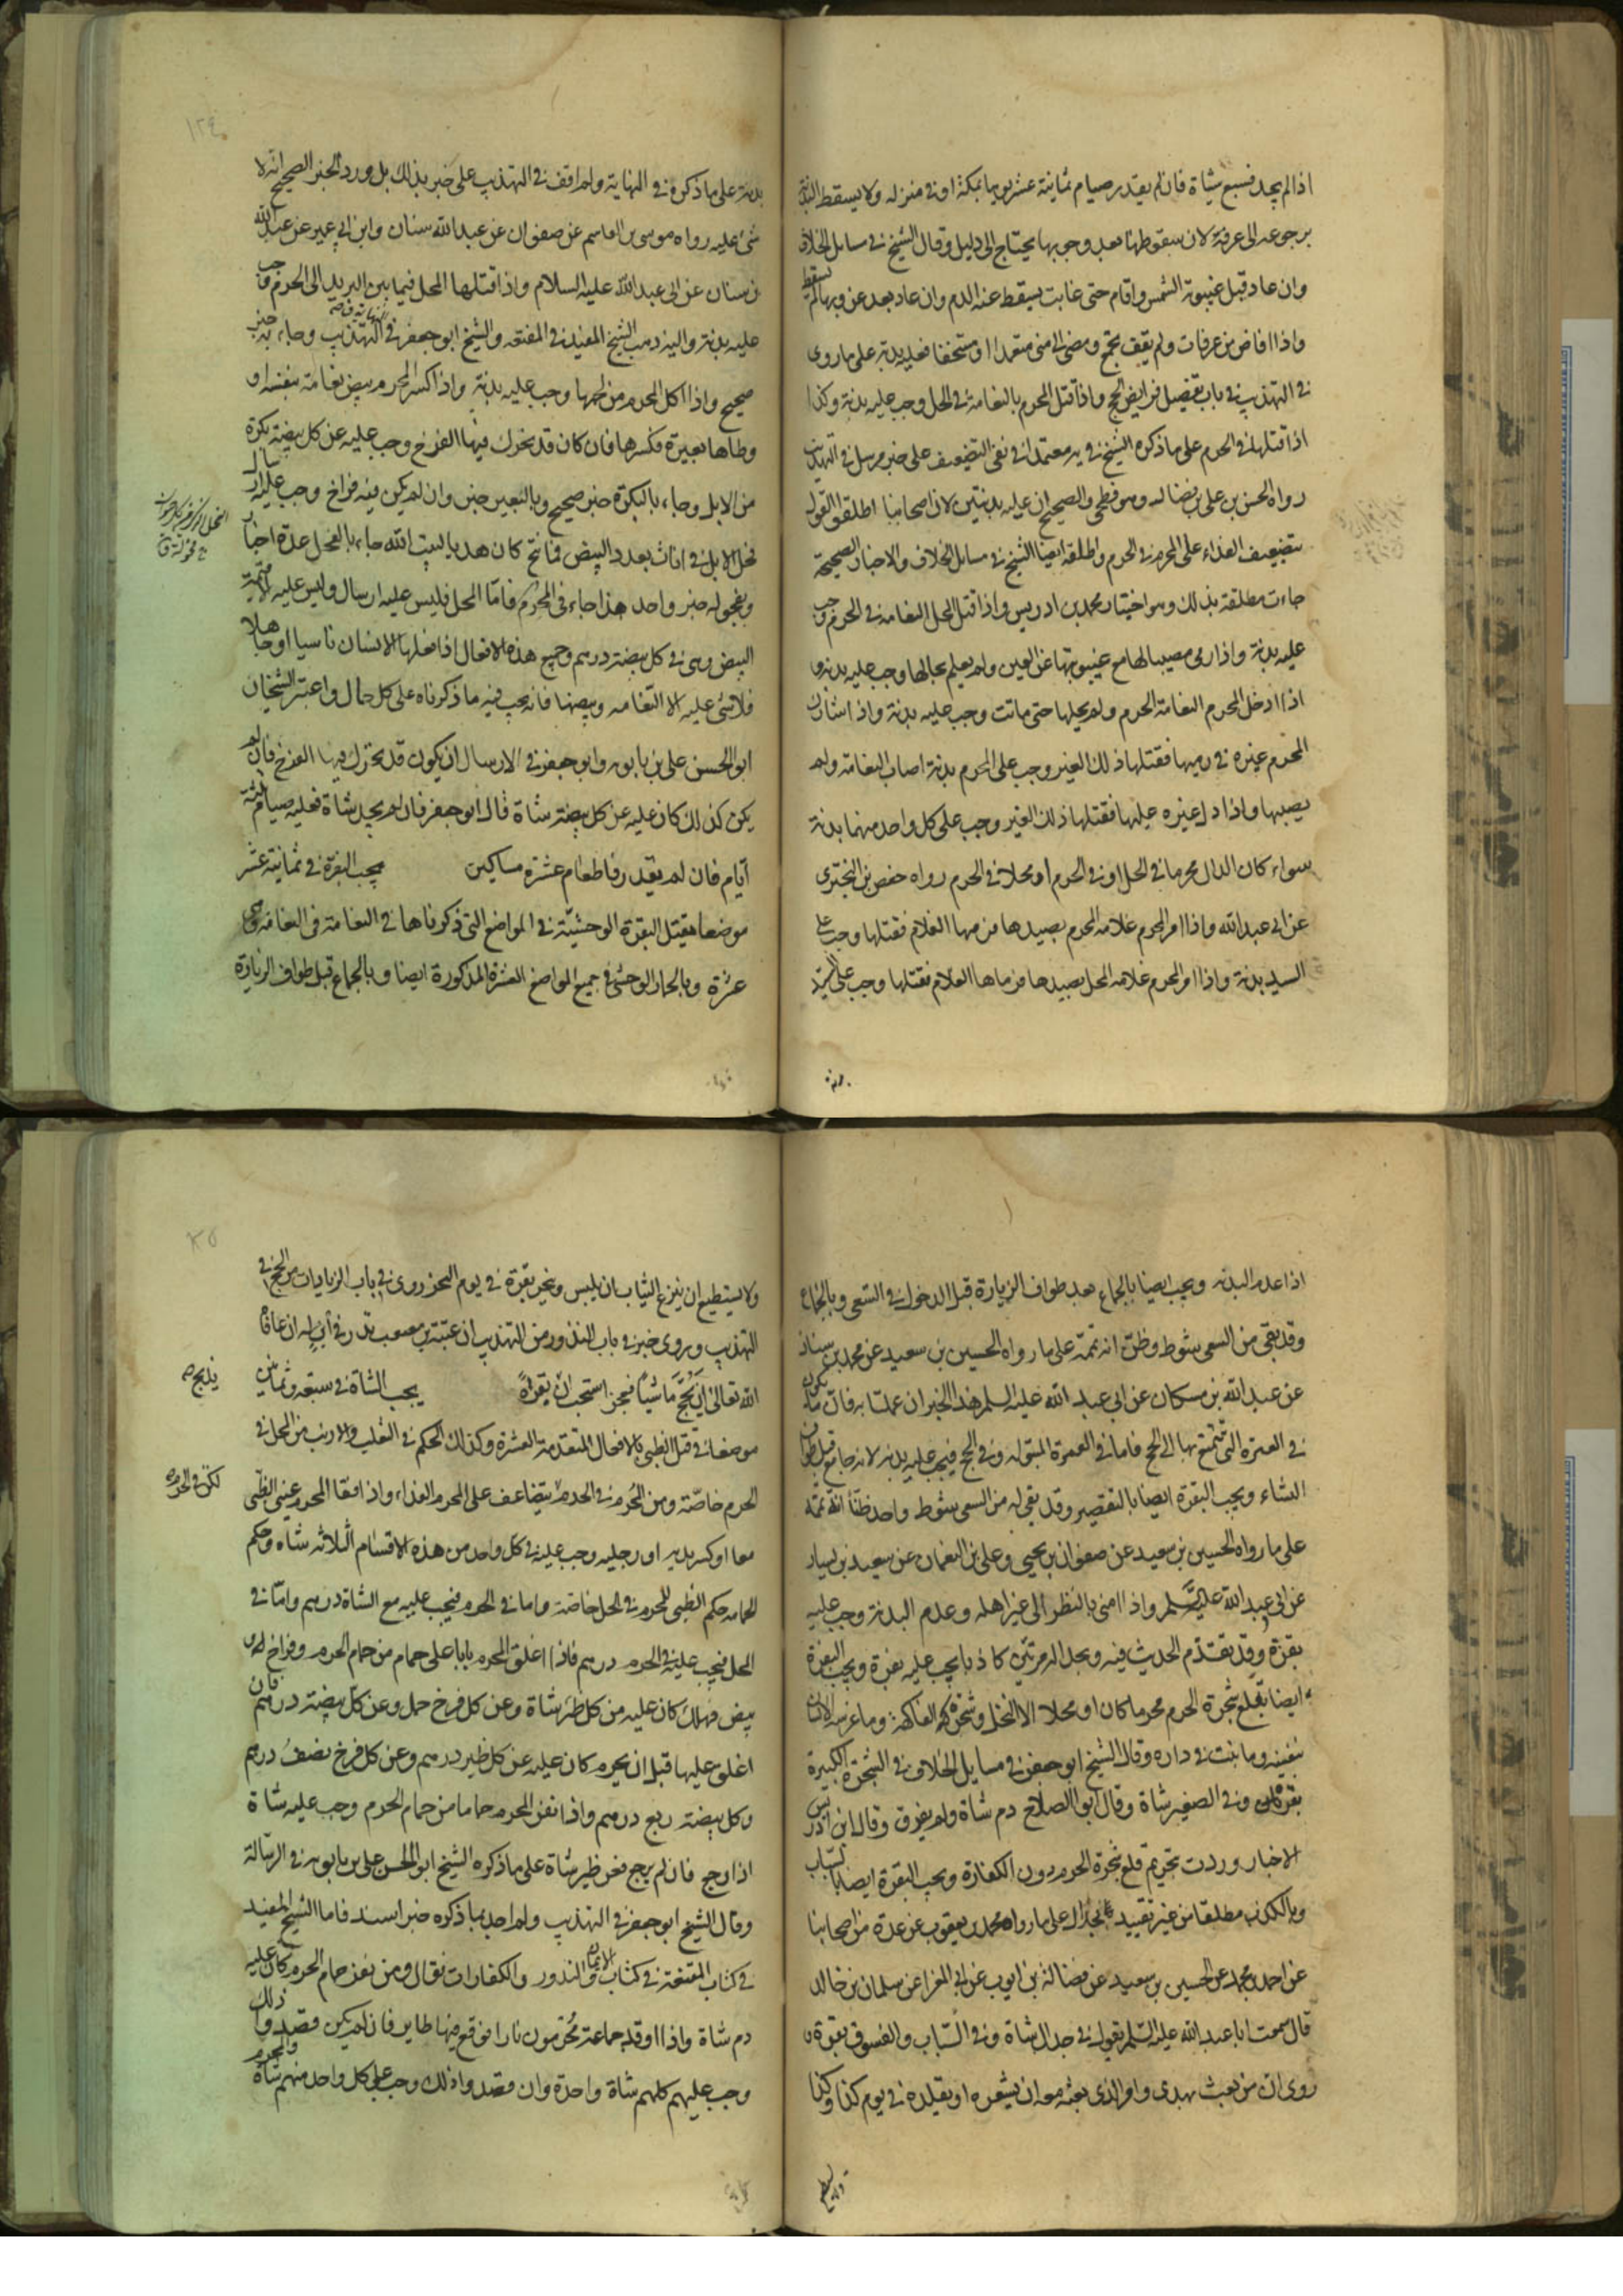 اذا لم يجد فسبع شياة فان لم يقدر صيام ثمانية عشر يوما بمكة او في منزله ولا يسقط البدنة
برجوعه الى عرفة لان سقوطها بعد وجوبها يحتاج الى دليل وقال الشيخ في مسايل الخلاف
وان عاد قبل غيبوبة الشمس واقام حتى غابت يسقط عنه الدم وان عاد بعد غروبها لم يسقط
واذا افاض من عرفات ولم يقف بجمع ومضى الى منى متعمدا او مستخفا فعليه بدنة على ما روى
في التهذيب في باب تفصيل فرايض الحج واذا قتل المحرم بالنعامة في الحل وجب عليه بدنة وكذا
اذا قتلها في الحرم على ما ذكره الشيخ في يه معتمدا في نفي التضعيف على خبر مرسل في التهذيب
رواه الحسن بن علي بن فضال وهو فطحي والصحيح ان عليه بدنتين لان اصحابنا اطلقوا القول
بتضعيف الفداء على المحرم في الحرم واطلقه ايضا الشيخ في مسائل الخلاف والاخبار الصحيحة
جاءت مطلقة بذلك وهو اختيار محمد بن ادريس واذا قتل المحل النعامة في الحرم وجب
عليه بدنة واذا رمى مصيبا لها مع غيبوبتها عن العين ولم يعلم بحالها وجب عليه بدنة و
اذا ادخل المحرم النعامة الحرم ولم يخلها حتى ماتت وجب عليه بدنة واذا شارك
المحرم غيره في رميها فقتلها ذلك الغير وجب على المحرم بدنة اصاب النعامة ولم
يصبها واذا دل غيره عليها فقتلها ذلك الغير وجب على كل واحد منهما بدنة
سواء كان الدال محرما في الحل او في الحرم او محلا في الحرم رواه حفص بن البختري
عن ابي عبد الله واذا امر المحرم غلامه المحرم بصيدها فرمها الغلام فقتلها وجب على
السيد بدنة واذا امر المحرم غلامه المحل بصيدها فرماها الغلام فقتلها وجب على السيد
بدنة
بدنة على ما ذكره في النهاية ولم اقف في التهذيب على خبر بذلك بل ورد الخبر الصحيح انه لا
شئ عليه رواه موسى بن القاسم عن صفوان عن عبد الله سنان وابن ابي عمير عن عبد الله
بن سنان عن ابي عبد الله عليه السلام واذا قتلها المحل فيما بين البريد الى الحرم وجب
عليه بدنة واليه ذهب الشيخ المفيد في المقنعه والشيخ ابو جعفر في التهذيب وجاء به خبر
صحيح واذا اكل المحرم من لحمها وجب عليه بدنة واذا كسر المحرم بيض نعامة بنفسه او
وطاها بعيره فكسرها فان كان قد تحرك فيها الفرخ وجب عليه عن كل بيضة بكرة
من الابل وجاء بالبكرة خبر صحيح وبالبعير خبر وان لم يكن فيه فراخ وجب عليه ارسال
فحل الابل في اناث بعدد البيض فما نتج كان هديا لبيت الله جاء بالفحل عدة اخبار
وبفحوله خبر واحد هذا جاء في المحرم فاما المحل فليس عليه ارسال وليس عليه الا قيمة
البيض وهي في كل بيضة درهم وجميع هذه الافعال اذا فعلها الانسان ناسيا او جاهلا
فلا شئ عليه الا النعامه وبيضها فانه يجب فيه ما ذكرناه على كل حال واعتبر الشيخان
ابو الحسن علي بن بابويه وابو جعفر في الارسال ان يكون قد تحرك فيها الفرخ فان لم
يكن كذلك كان عليه عن كل بيضة شاة قال ابو جعفر فان لم يجد شاة فعليه صيام ثلثة
ايام فان لم يقدر فاطعام عشرة مساكين يجب البقرة في ثمانية عشر
موضعا بقتل البقرة الوحشيّة في المواضع التي ذكرناها في النعامة في النعامه وهي
عشرة وبالحمار الوحشي في جميع المواضع العشرة المذكورة ايضا وبالجماع قبل طواف الزيارة
اذا عدم البدنه ويجب ايضا بالجماع بعد طواف الزيارة قبل الدخول في السعي وبالجماع
وقد بقي من السعي شوط وظنّ انه تممّه على ما رواه الحسين بن سعيد عن محمد بن سنان
عن عبد الله بن مسكان عن ابي عبد الله عليه السلم هذا الخبر ان عملنا به فانّما يكون
في العمرة التي تمتع بها الى الحج فاما في العمرة المبتوله وفي الحج فيجب عليه بدنه لانه جامع قبل طواف
النساء ويجب البقرة ايضا بالتقصير وقد بقي له من السعي شوط واحد ظنّا انّه تمّه
على ما رواه الحسين بن سعيد عن صفوان بن يحيى وعلي بن النعمان عن سعيد بن يسار
عن ابي عبد الله عليه السّلم واذا امنى بالنظر الى غير اهله وعدم البدنة وجب عليه
بقرة وقد تقدّم الحديث فيه وبجداله مرتين كاذبا يجب عليه بقرة ويجب البقرة
ايضا بقلع شجرة الحرم محرما كان او محلا الا النخل وشجر الفاكهة وما غرسه الانسان
بنفسه وما نبت في داره وقال الشيخ ابو جعفر في مسايل الخلاف في الشجرة الكبيرة
بقرة وفي الصغير شاة وقال ابو الصلاح دم شاة ولم يفرق وقال ابن ادريس
الاخبار وردت بتحريم قلع شجرة الحرم دون الكفارة ويجب البقرة ايضا بالسباب
وبالكذب مطلقا من غير تقييد بجدال على ما رواه محمد بن يعقوب عن عدة من اصحابنا
عن احمد بن محمد عن الحسين بن سعيد عن فضالة بن ايوب عن ابي المغرا عن سلمان بن خالد
قال سمعت ابا عبد الله عليه السّلم يقول في جدال شاة وفي السّباب والفسوق بقرة و
روى ان من بعث بهدى وامر الذي بعثه معه ان يشعره او يقلده في يوم كذا وكذا
ولا يستطيع ان ينزع الثياب ان يلبس وينحر بقرة في يوم النحر روى في باب الزيادات من الحج في
التهذيب وروى خبر في باب النذور من التهذيب ان عتبة بن مصعب نذر في ابن له ان عافا
الله تعالى ان يحجّ ماشيا فعجز استحب ان بقرة يجب الشاة في سبعة وثمانين
يذبح صح
موضعا في قتل الظبي بالافعال المتقدمة العشرة وكذلك الحكم في الثعلب والارنب من المحل في
الحرم خاصّة ومن المُحرم في الحرم يتضاعف على المحرم الفداء واذا فقأ المحرم عيني الظبى
معا او كسر يديه او رجليه وجب عليه في كل واحد من هذه الاقسام الثلاثه شاه وحكم
الحمامه حكم الظبي للمحرم في الحل خاصة واما في الحرم فيجب عليه مع الشاة درهم وامّا في
الحل فيجب عليه في الحرم درهم فاذا اغلق المحرم بابا على حمام من حمام الحرم وفراخ له و
بيض فهلك كان عليه من كل طير شاة وعن كل فرخ حمل وعن كل بيضه درهم فان
اغلق عليها قبل ان يحرم كان عليه عن كل طير درهم وعن كل فرخ نصف درهم
وكل بيضة ربع درهم واذا نفر المحرم حماما من حمام الحرم وجب عليه شاة
اذا رجع فان لم يرجع فعن طير شاة على ما ذكره الشيخ ابو الحسن علي بن بابويه في الرسالة
وقال الشيخ ابو جعفر في التهذيب ولم احد بما ذكره خبرا اسند فاما الشيخ المفيد
في كتاب المقنعة في كتاب الايمان والنذور والكفارات يقال ومن نفر حمام الحرم كان عليه
دم شاة واذا اوقد جماعة مُحرمون نارا فوقع فيها طاير فان لم يكن قصدوا ذلك
وجب عليهم كلهم شاة واحدة وان قصدوا ذلك وجب على كل واحد منهم شاة والمحرم